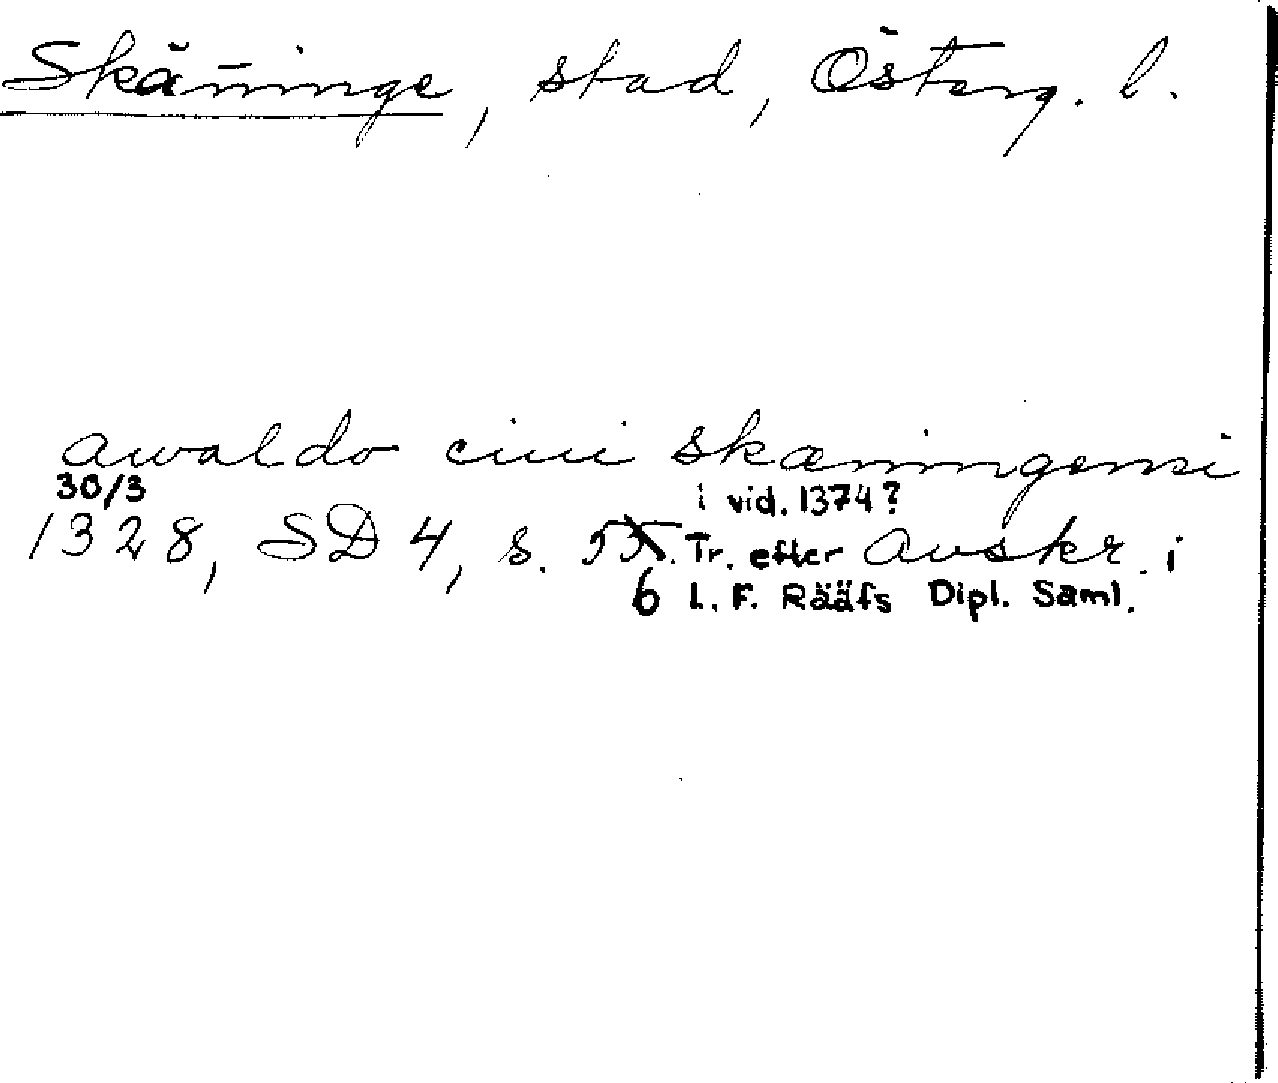 Skänninge, stad, Österg. l.
awaldo ciui skæningensi
30/3 i vid. 1374?
1328, SD 4, s. 55. Tr. efter Avskr. i
6 L. F. Rääfs Dipl. Saml.